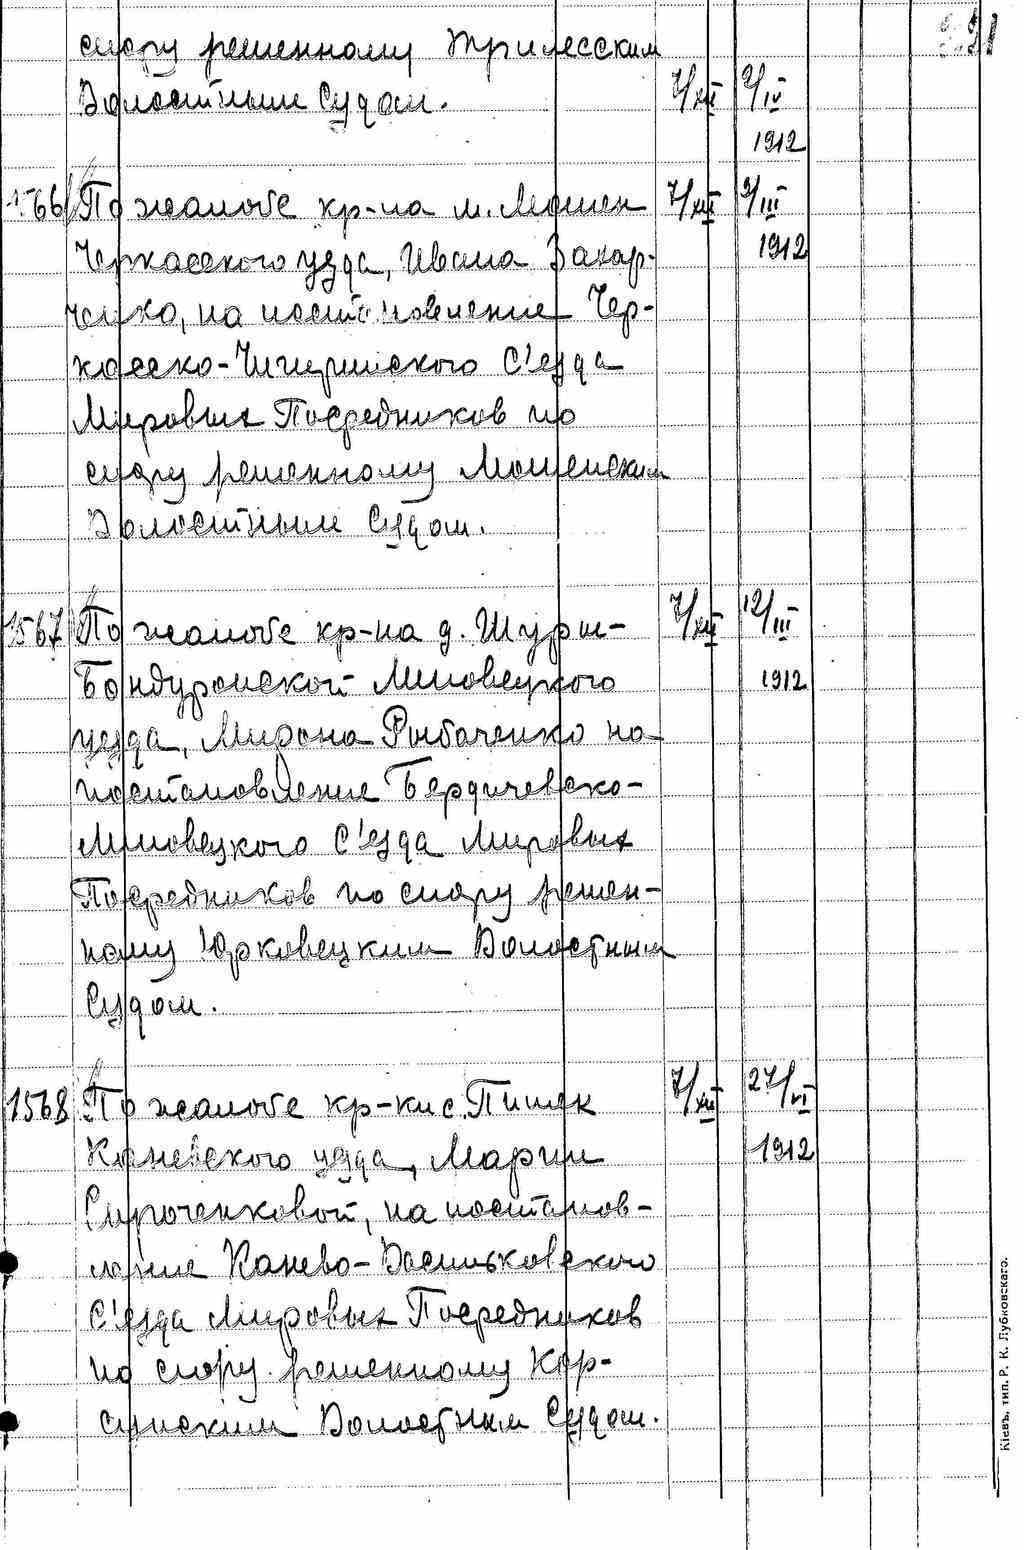 спору решенному Трилесским
Волостным Судом. 7/XII 9/IV
1912
1566 По жалобе кр-на м. Мошен 7/XII 9/III
Черкасского уезда, Ивана Захар- 1912
ченко, на постановление Чер-
касско-Чигиринского С'езда
Мировых Посредников по
спору решенному Мошенским
Волостным Судом.
1567 По жалобе кр-на д. Шуры- 7/XII 12/III
Бондуронской Липовецкого 1912
уезда, Мирона Рыбаченко на
постановление Бердичевско-
Липовецкого С'езда Мировых
Посредников по спору решен-
ному Юрковецким Волостным
Судом.
1568 По жалобе кр-ки с. Пищек 7/XII 27/VI
Каневского уезда, Марии 1912
на постанов-
ление Канево-Васильковского
С'езда Мировых Посредников
по спору решенному Кор-
сунским Волостным Судом.
Кіевъ, тип. Р. К. Лубковскаго.